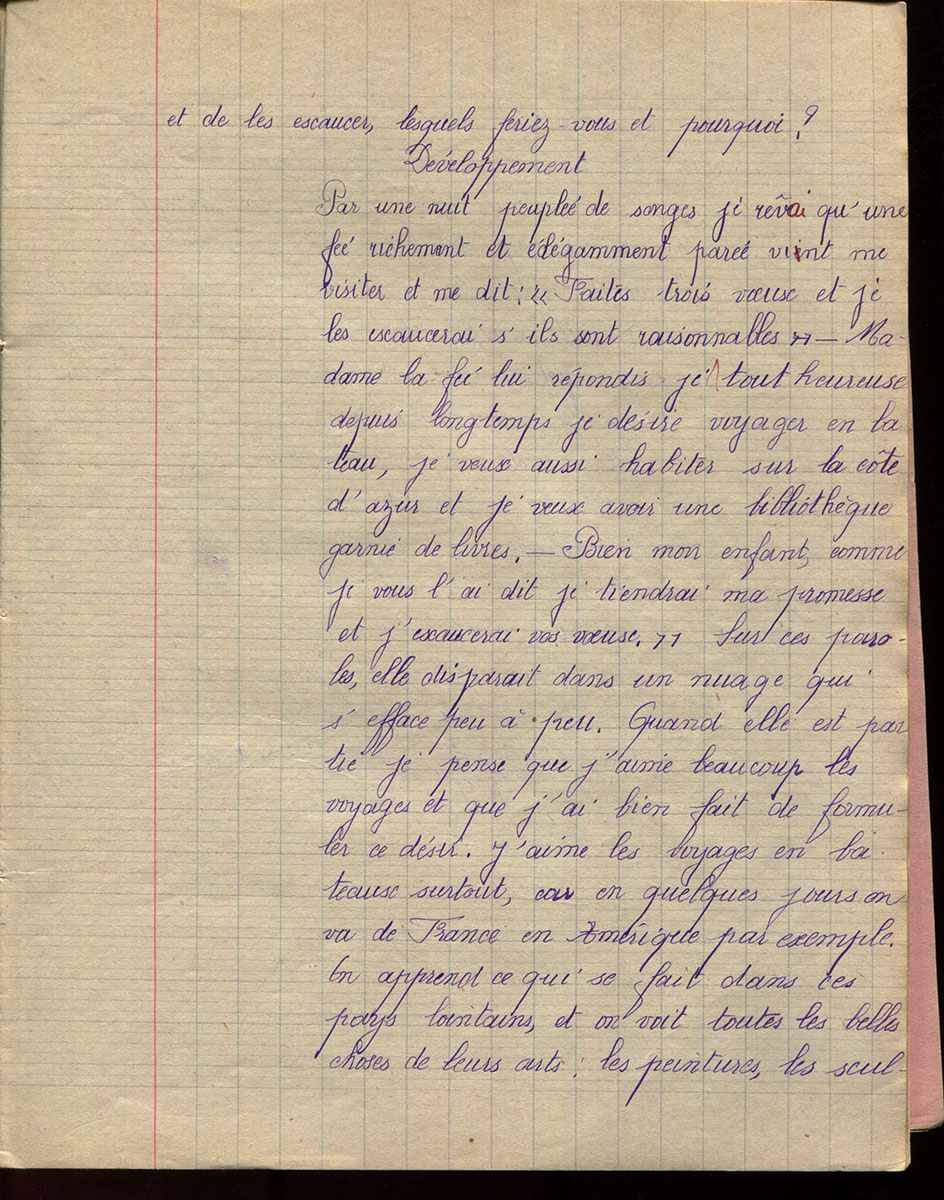 et de les escaucer, lesquels feriez-vous et pourquoi ?
Développement
Par une nuit peupleé de songes je rêvai qu'une
feé richement et élégamment pareé vient me
visiter et me dit : « Faites trois vœux et je
les escaucerai s'ils sont raisonnables » — Ma-
dame la feé lui répondis je tout heureuse
depuis longtemps je désire voyager en ba
teau, je veux aussi habiter sur la côte
d'azur et je veux avoir une bibliothèque
garnie de livres. — Bien mon enfant, comme
je vous l'ai dit je tiendrai ma promesse
et j'exaucerai vos vœux. » Sur ces paro-
les, elle disparait dans un nuage qui
s'efface peu à peu. Quand elle est par
tie je pense que j'aime beaucoup les
voyages et que j'ai bien fait de formu-
ler ce désir. J'aime les voyages en ba-
teaux surtout, car en quelques jours on
va de France en Amérique par exemple.
On apprend ce qui se fait dans ces
pays lointains, et on voit toutes les belles
choses de leurs arts : les peintures, les scul-